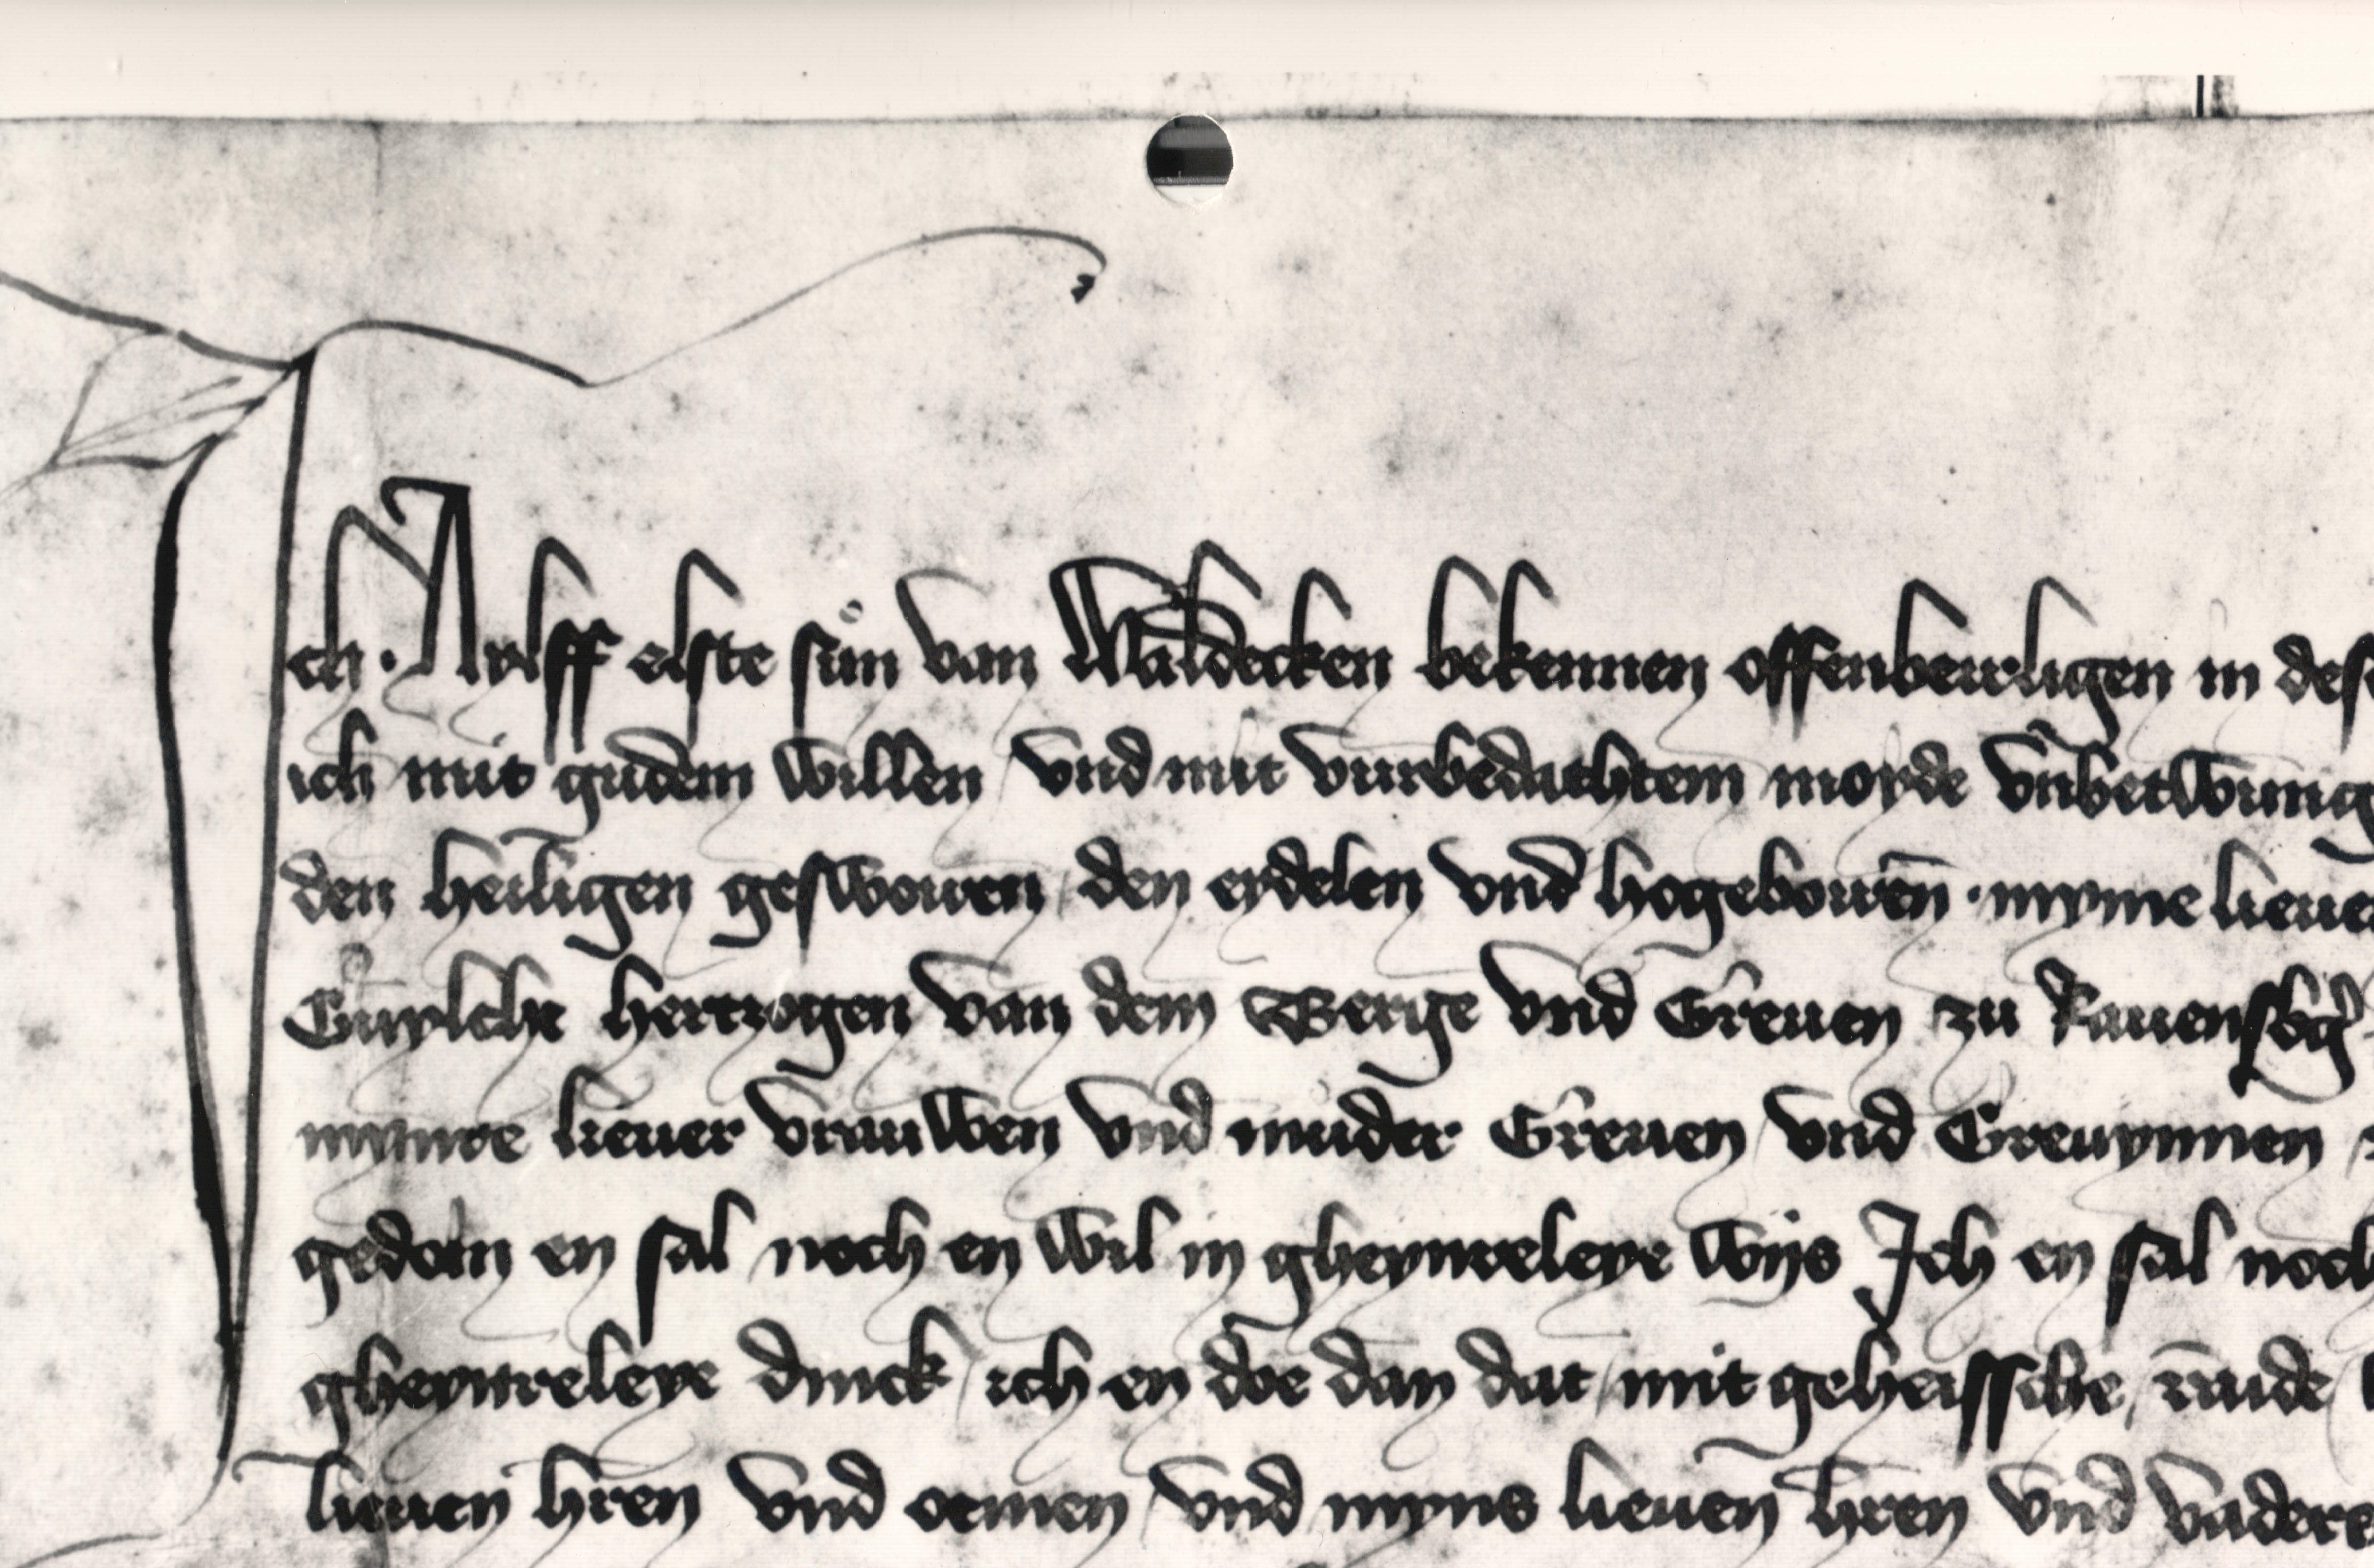 Ich · Aylff elste sůn van Waldecken bekennen offenbeirligen in des
ich mit gudem willen vnd mit vurbedachtem moyde vnbetwung
den heiligen geswoiren den eydelen vnd hogeboiren · myme lieue
Guylche hertzogen van dem Berge vnd Greuen zu Rauensbg
mynre lieuer vrauwen vnd muder Greuen vnd Greuynnen
gedoin en sal noch en wil in gheynreleye wijs Ich en sal noch
gheynreleye dinck ich en doe dan dat mit geheissche raide
lieuen hren vnd oemen vnd myns lieuen hren vnd vaders